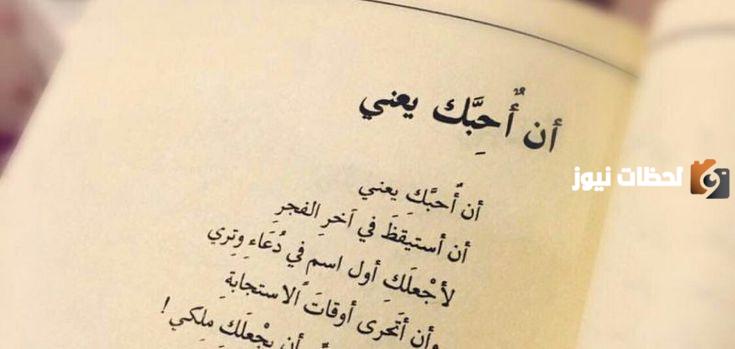 أن أُحِبَّك يعني
أن أُحبَّكِ يعني
أن أستيقظَ في آخرِ الفجرِ
لأجْعلَكِ أول اسم في دُعَاءِ وِتري
وأن أتحرى أوقاتَ الاستجابةِ
أن يجْعلَكِ مِلكي!
لحظات نيوز